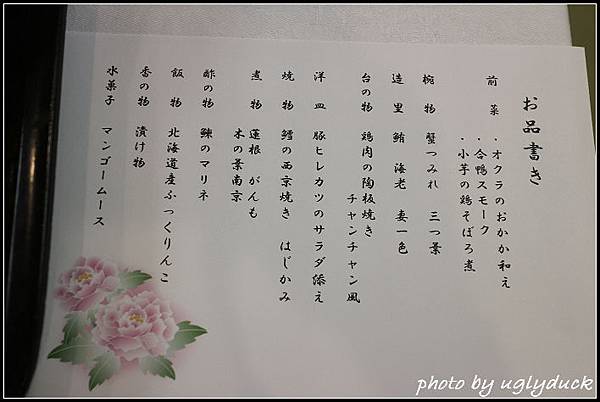 お品書き
前菜 ・オクラのおかか和え
・合鴨スモーク
・小芋の鶏そぼろ煮
椀物 蟹つみれ 三つ葉
造里 鮪 海老 妻一色
台の物 鶏肉の陶板焼き
チャンチャン風
洋皿 豚ヒレカツのサラダ添え
焼物 鱈の西京焼き はじかみ
煮物 蓮根 がんも
木の葉南京
酢の物 鰊のマリネ
飯物 北海道産ふっくりんこ
香の物 漬け物
水菓子 マンゴームース
photo by uglyduck